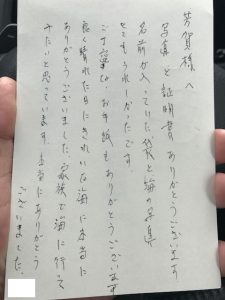 芳賀様へ
写真と証明書ありがとうございます
名前が入っていた袋と海の写真
とてもうれしかったです
ご丁寧なお手紙もありがとうございます
良く晴れた日にきれいな海に本当に
ありがとうございました 家族で海に行って
みたいと思っています。本当にありがとう
ございました。